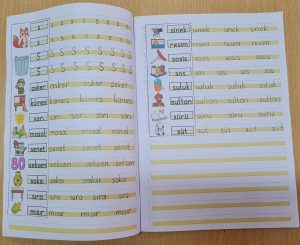 s s s s s s
s s s s s s
S S S S S S
S S S S S S
asker asker asker asker
kümes kümes kümes kümes
sarı sarı sarı sarı
masal masal masal masal
senet senet senet senet
80 seksen seksen seksen
saksı saksı saksı
sıra sıra sıra sıra
mısır mısır mısır mısır
sinek sinek sinek sinek
resim resim resim resim
sosis sosis sosis sosis
sos sos sos sos
suluk suluk suluk suluk
sultan sultan sultan sultan
sürü sürü sürü sürü
süt süt süt süt